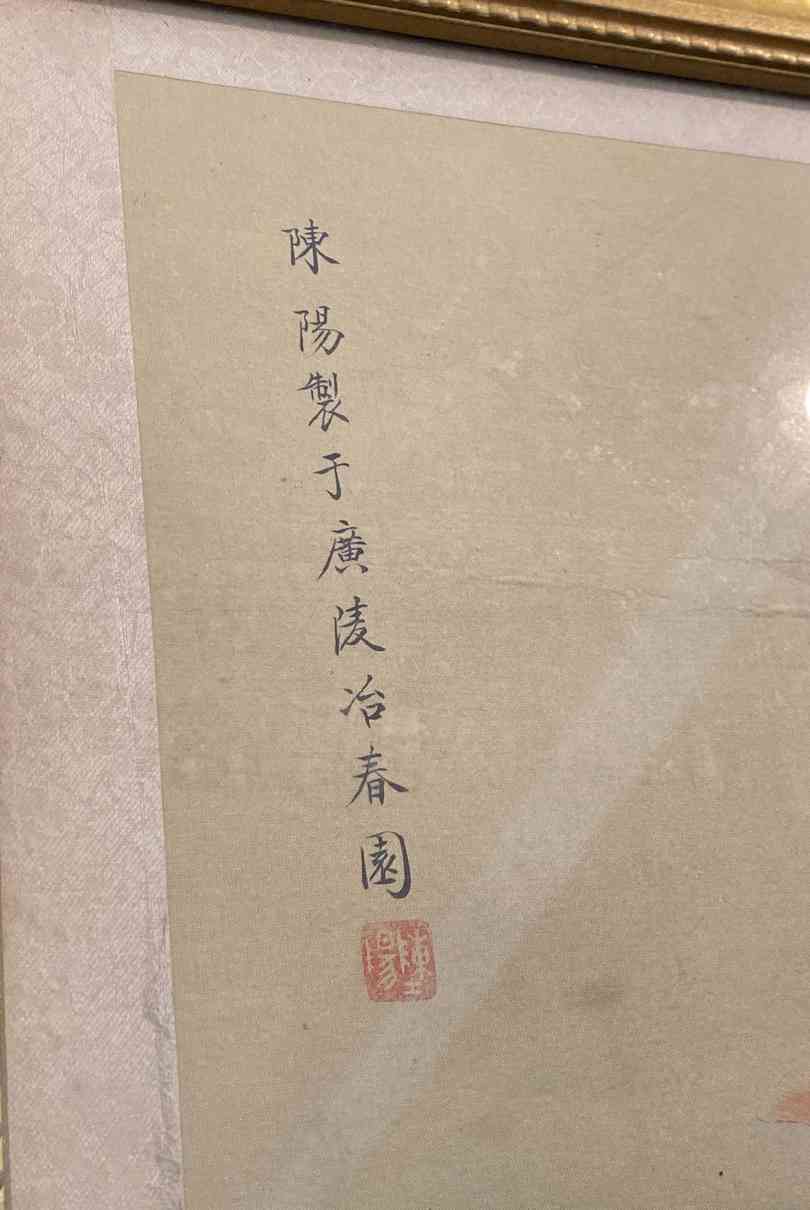 陳陽製于廣陵冶春園
陳陽